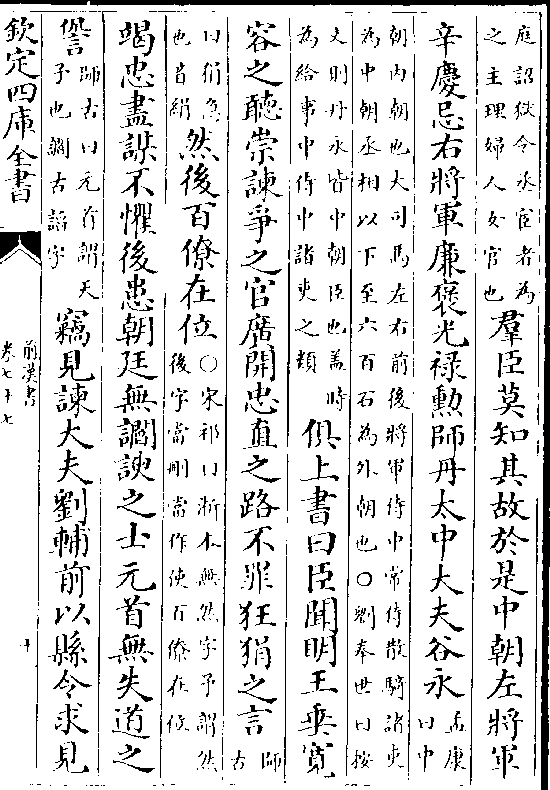 庭詔獄令丞宦者為之主理婦人女官也羣臣莫知其故於是中朝左將軍
辛慶忌右將軍廉褒光禄勲師丹太中大夫谷永孟康曰中
朝内朝也大司馬左右前後將軍侍中常侍散騎諸吏
為中朝丞相以下至六百石為外朝也○劉奉世曰按
文則丹永皆中朝臣也盖時為給事中侍中諸吏之類俱上書曰臣聞明王垂寛
容之聽崇諫爭之官廣開忠直之路不罪狂狷之言師古
曰狷急也音絹然後百僚在位○宋祁曰浙本無然字予謂然後字當刪當作使百僚在位
竭忠盡謀不懼後患朝廷無讇諛之士元首無失道之
諐師古曰元首謂天子也讇古諂字竊見諫大夫劉輔前以縣令求見
欽定四庫全書
前漢書
卷七十七
十